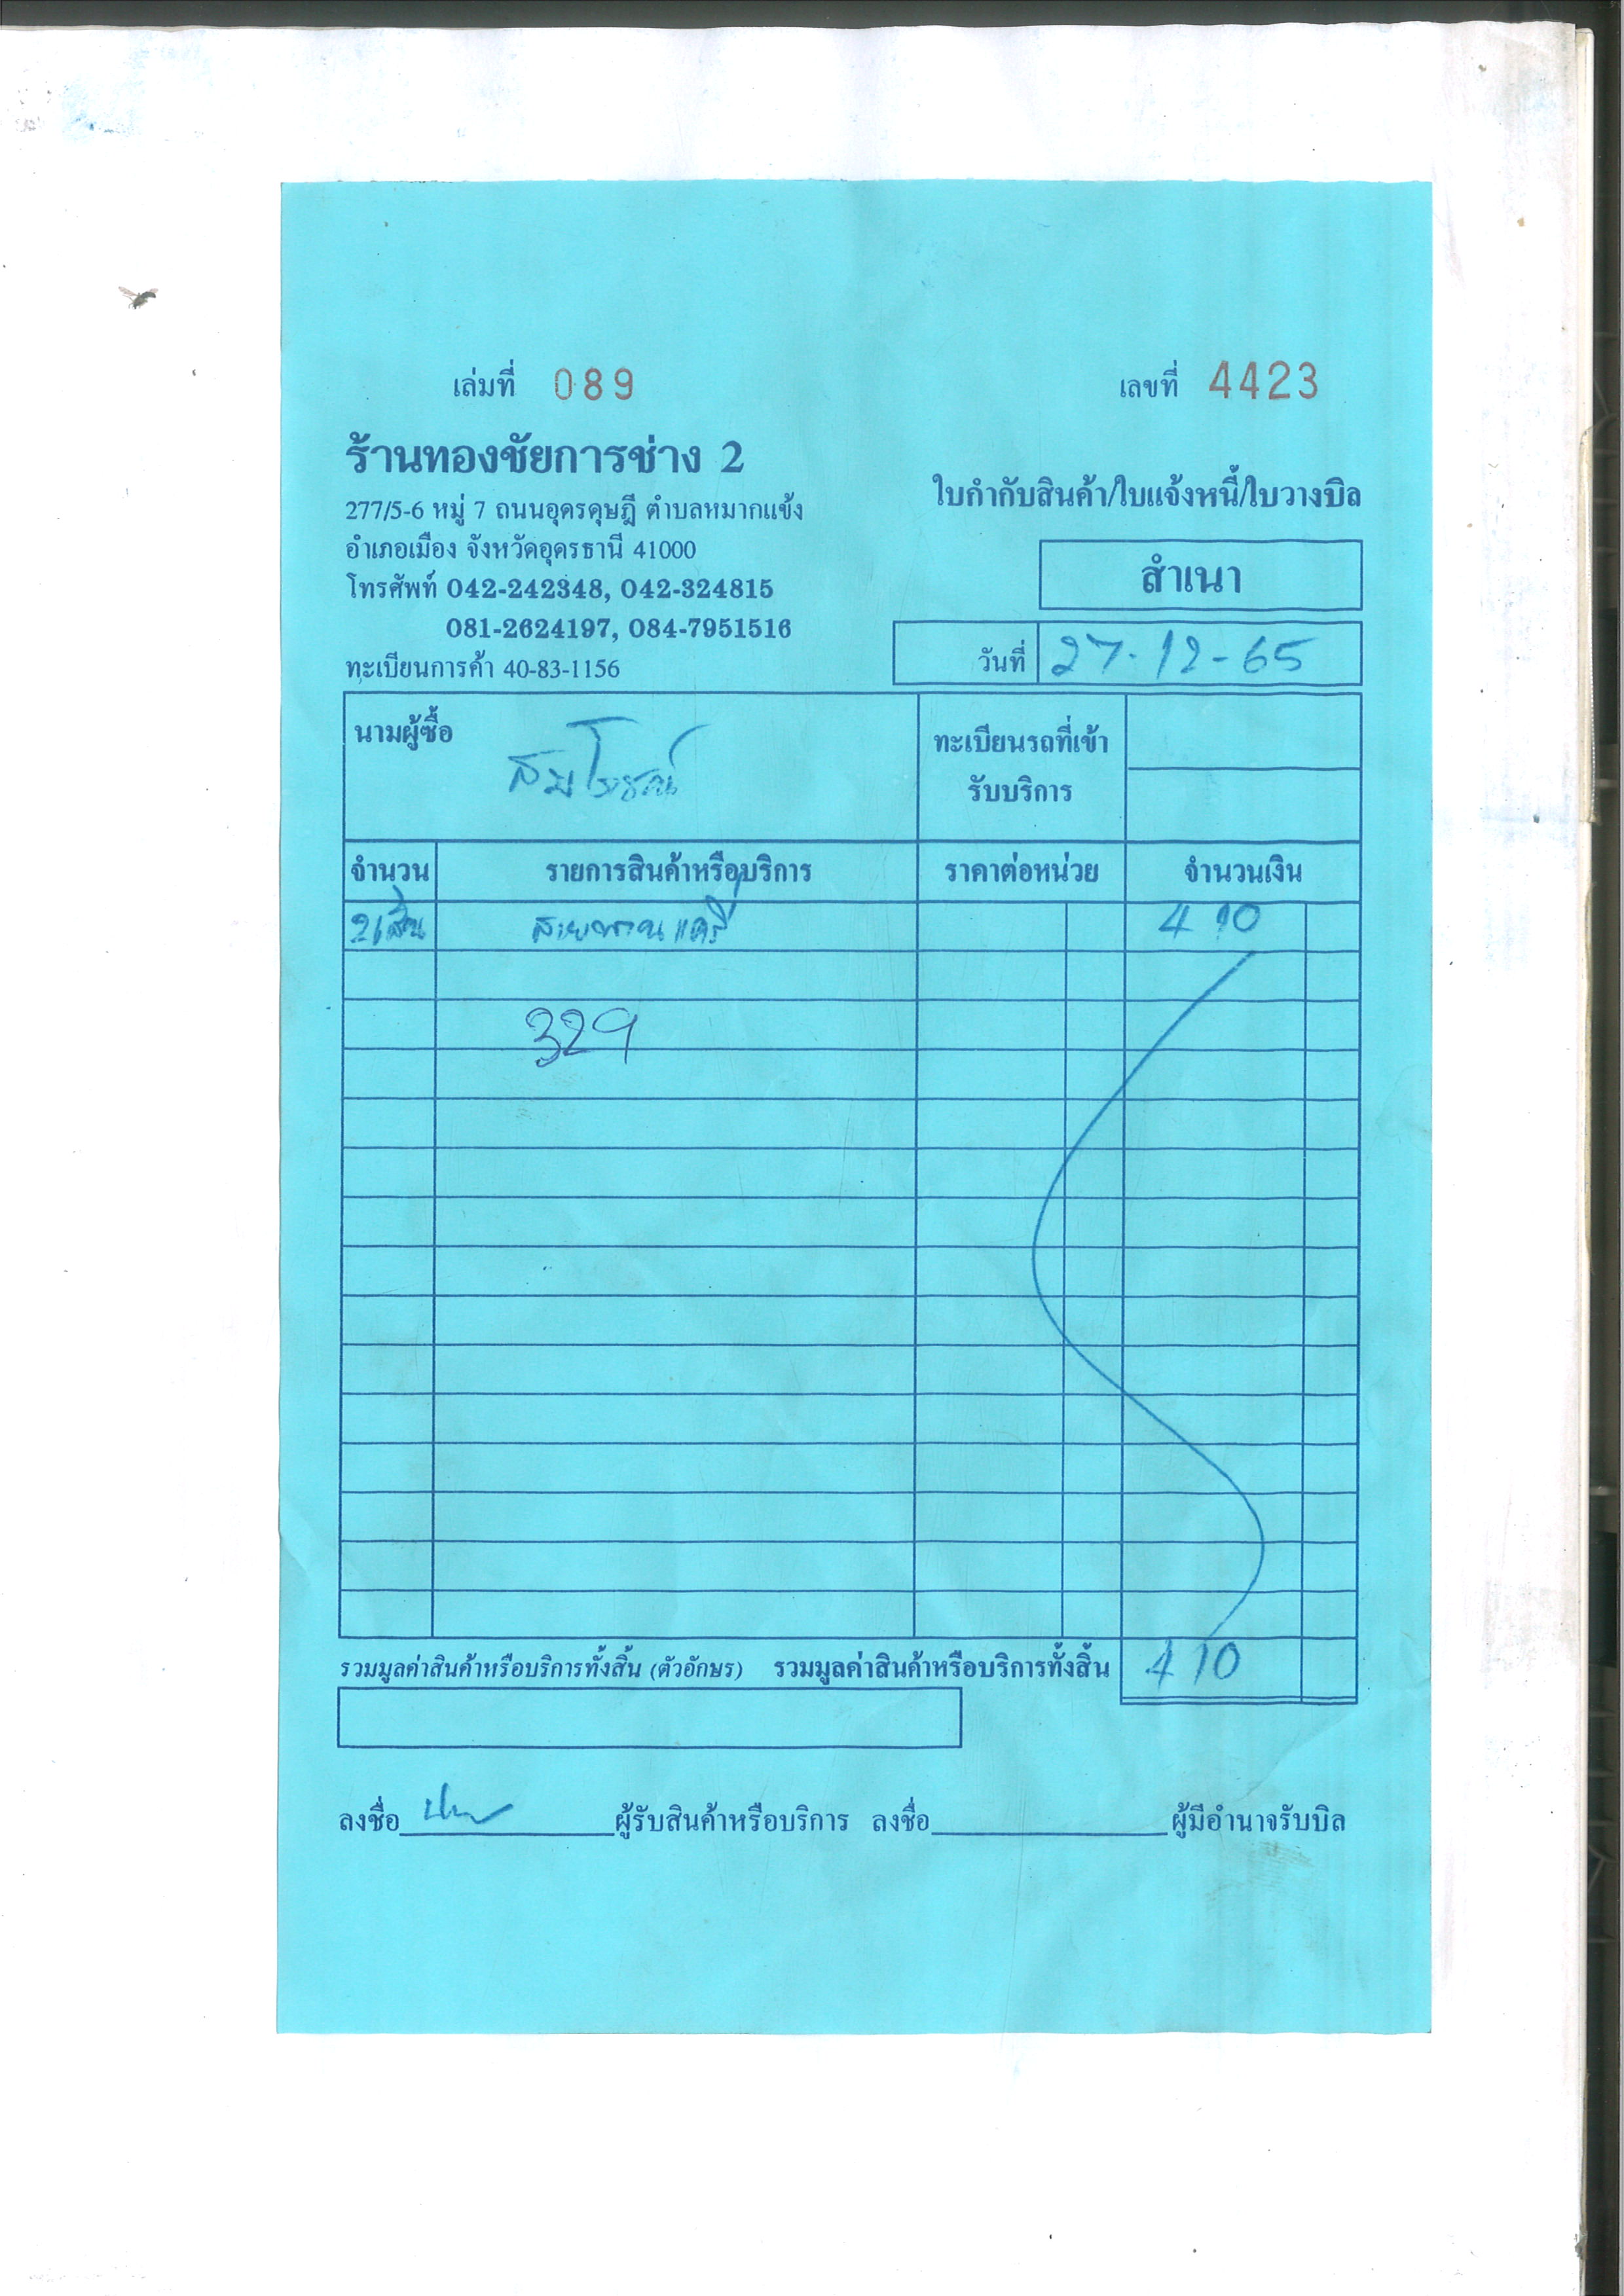 เล่มที่ 089 เลขที่ 4423
ร้านทองชัยการช่าง 2
277/5-6 หมู่ 7 ถนนอุดรดุษฎี ตำบลหมากแข้ง
อำเภอเมือง จังหวัดอุดรธานี 41000
โทรศัพท์ 042-242348, 042-324815
081-2624197, 084-7951516
ทะเบียนการค้า 40-83-1156
ใบกำกับสินค้า/ใบแจ้งหนี้/ใบวางบิล
สำเนา
วันที่ 27-12-65
นามผู้ซื้อ
ทะเบียนรถที่เข้า
รับบริการ
จำนวน รายการสินค้าหรือบริการ ราคาต่อหน่วย จำนวนเงิน
2 เส้น 410
329
รวมมูลค่าสินค้าหรือบริการทั้งสิ้น (ตัวอักษร) รวมมูลค่าสินค้าหรือบริการทั้งสิ้น 410
ลงชื่อ ผู้รับสินค้าหรือบริการ ลงชื่อ ผู้มีอำนาจรับบิล